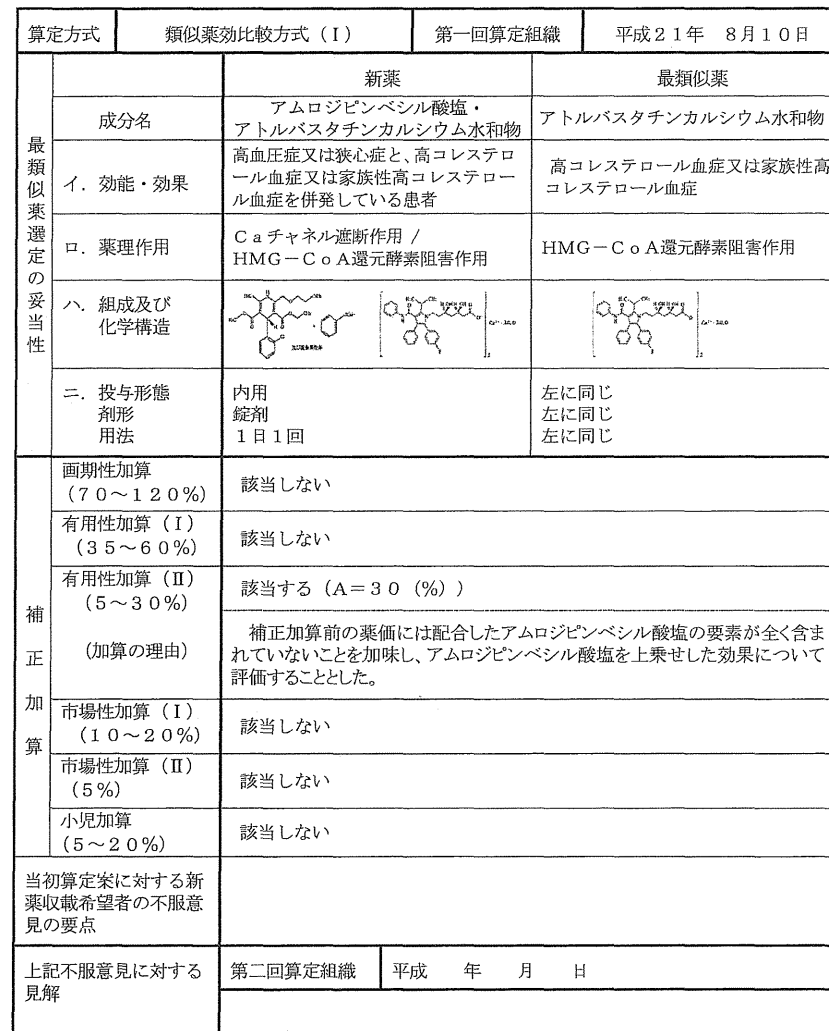 算定方式 類似薬効比較方式（Ⅰ） 第一回算定組織 平成２１年 ８月１０日
新薬 最類似薬
最類似薬選定の妥当性
成分名
アムロジピンベシル酸塩・
アトルバスタチンカルシウム水和物
アトルバスタチンカルシウム水和物
イ．効能・効果
高血圧症又は狭心症と、高コレステロ
ール血症又は家族性高コレステロー
ル血症を併発している患者
高コレステロール血症又は家族性高
コレステロール血症
ロ．薬理作用
Ｃａチャネル遮断作用 /
ＨＭＧ－ＣｏＡ還元酵素阻害作用
ＨＭＧ－ＣｏＡ還元酵素阻害作用
ハ．組成及び
化学構造
ニ．投与形態
剤形
用法
内用
錠剤
１日１回
左に同じ
左に同じ
左に同じ
補正加算
画期性加算
（７０～１２０％）
該当しない
有用性加算（Ⅰ）
（３５～６０％）
該当しない
有用性加算（Ⅱ）
（５～３０％）
該当する（Ａ＝３０（％））
（加算の理由）
補正加算前の薬価には配合したアムロジピンベシル酸塩の要素が全く含ま
れていないことを加味し、アムロジピンベシル酸塩を上乗せした効果について
評価することとした。
市場性加算（Ⅰ）
（１０～２０％）
該当しない
市場性加算（Ⅱ）
（５％）
該当しない
小児加算
（５～２０％）
該当しない
当初算定案に対する新
薬収載希望者の不服意
見の要点
上記不服意見に対する
見解
第二回算定組織 平成 年 月 日